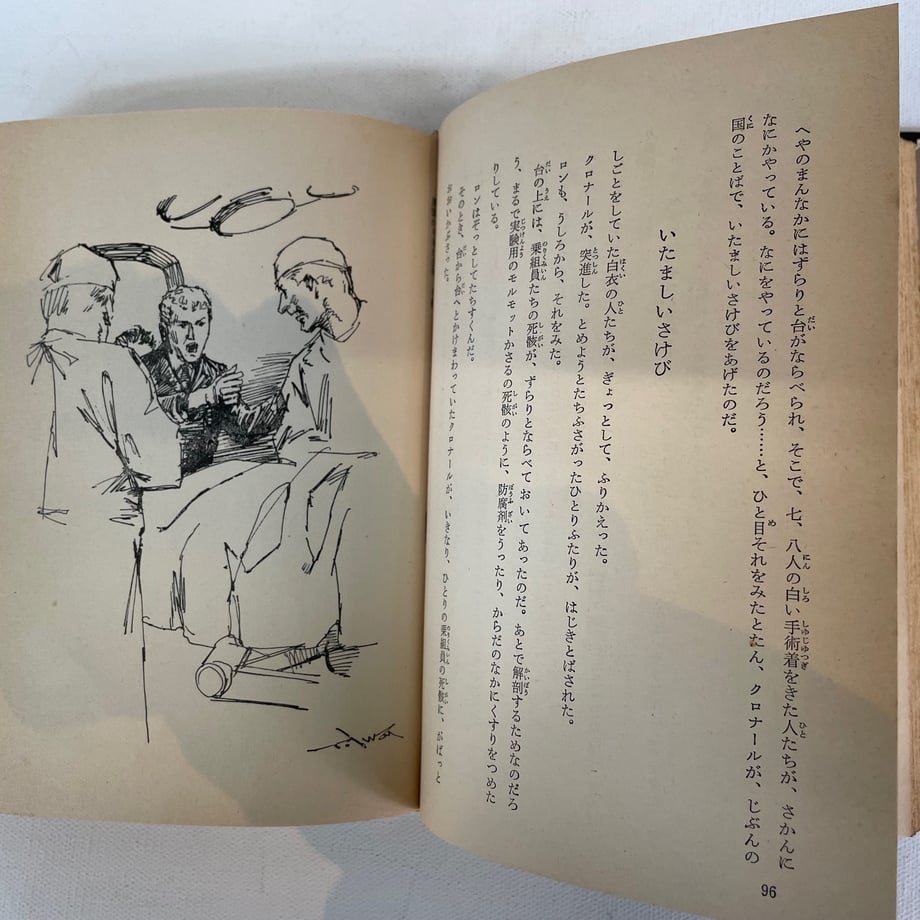 へやのまんなかにはずらりと台がならべられ、そこで、七、八人の白い手術着をきた人たちが、さかんに
なにかやっている。なにをやっているのだろう……と、ひと目それをみたとたん、クロナールが、じぶんの
国のことばで、いたましいさけびをあげたのだ。
いたましいさけび
しごとをしていた白衣の人たちが、ぎょっとして、ふりかえった。
クロナールが、突進した。とめようとたちふさがったひとりふたりが、はじきとばされた。
ロンも、うしろから、それをみた。
台の上には、乗組員たちの死骸が、ずらりとならべておいてあったのだ。あとで解剖するためなのだろ
う、まるで実験用のモルモットかさるの死骸のように、防腐剤をうったり、からだのなかにくすりをつめた
りしている。
ロンはぞっとしてたちすくんだ。
そのとき、台から台へとかけまわっていたクロナールが、いきなり、ひとりの乗組員の死骸に、がばっと
おおいかぶさった。
96